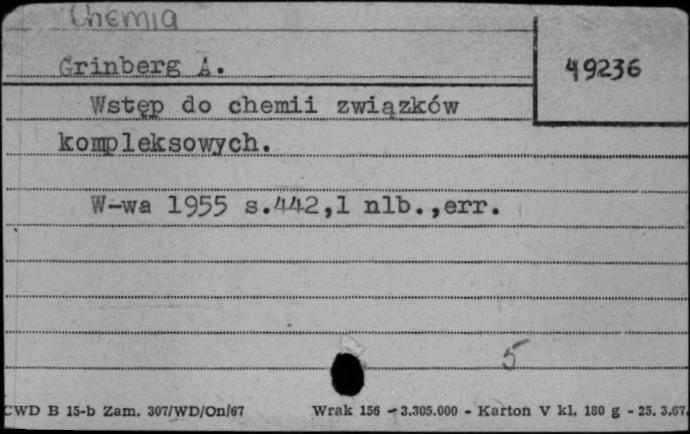 Chemia
Grinberg A.
49236
Wstęp do chemii związków
kompleksowych.
W-wa 1955 s.442,1 nlb.,err.
5
CWD B 15-b Zam. 307/WD/On/67 Wrak 156 - 3.305.000 - Karton V kl. 180 g - 25. 3.67.